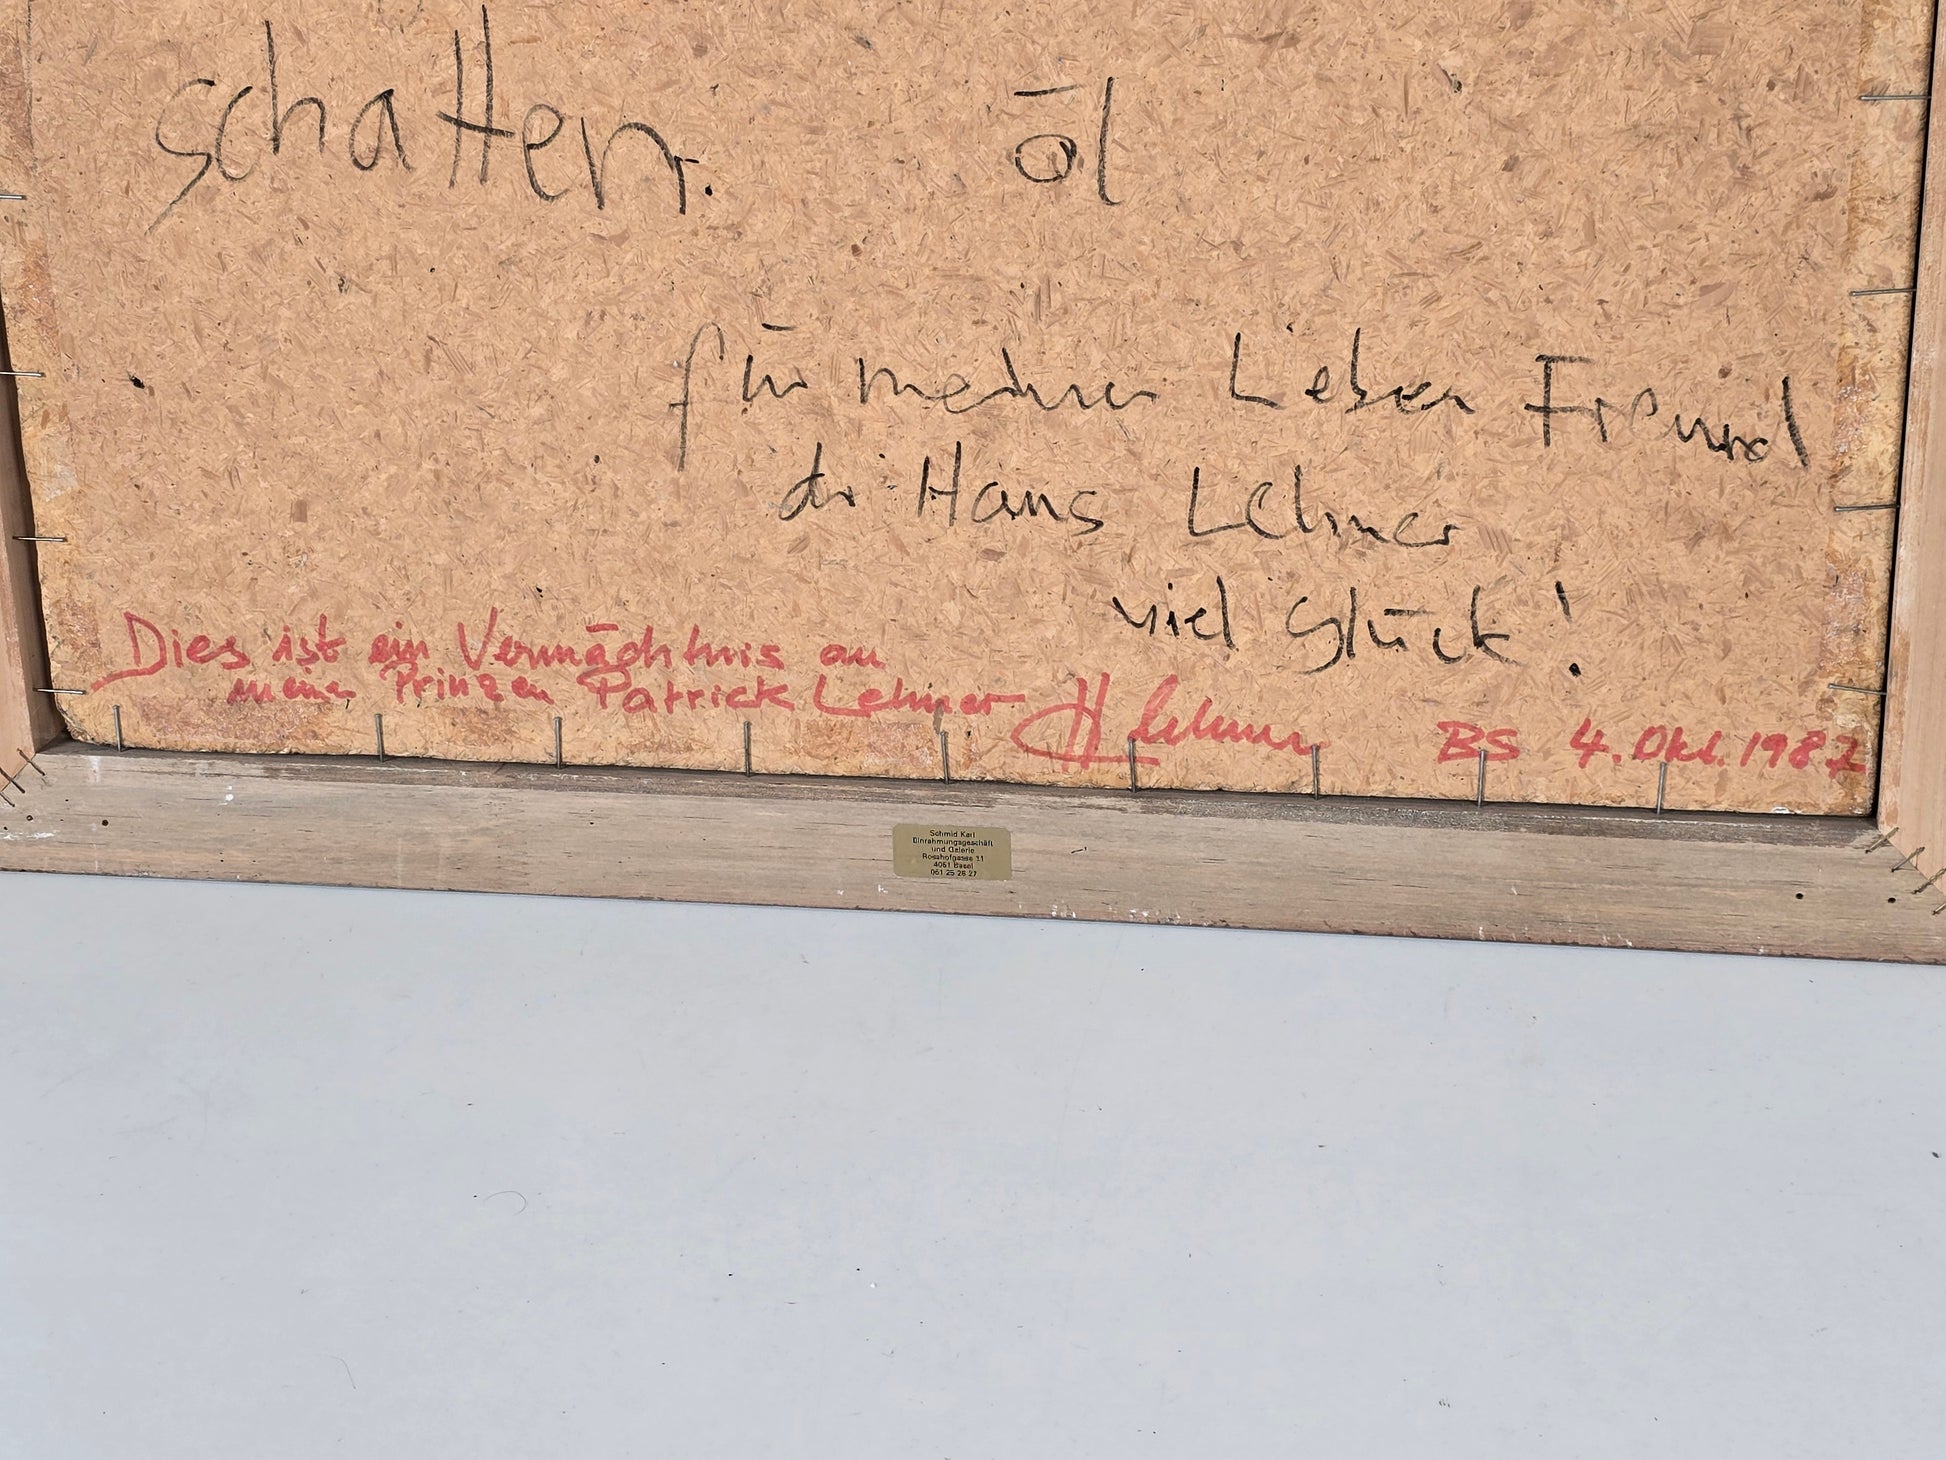 schatten. öl
für meinen Lieben Freund
dr Hans Lehner
viel glück!
Dies ist ein Vermächtnis an
meinen Prinzen Patrick Lehner
HLehner BS 4. Okt. 1987
Schmid Karl
Einrahmungsgeschäft
und Galerie
Rosshofgasse 11
4051 Basel
061 25 26 27